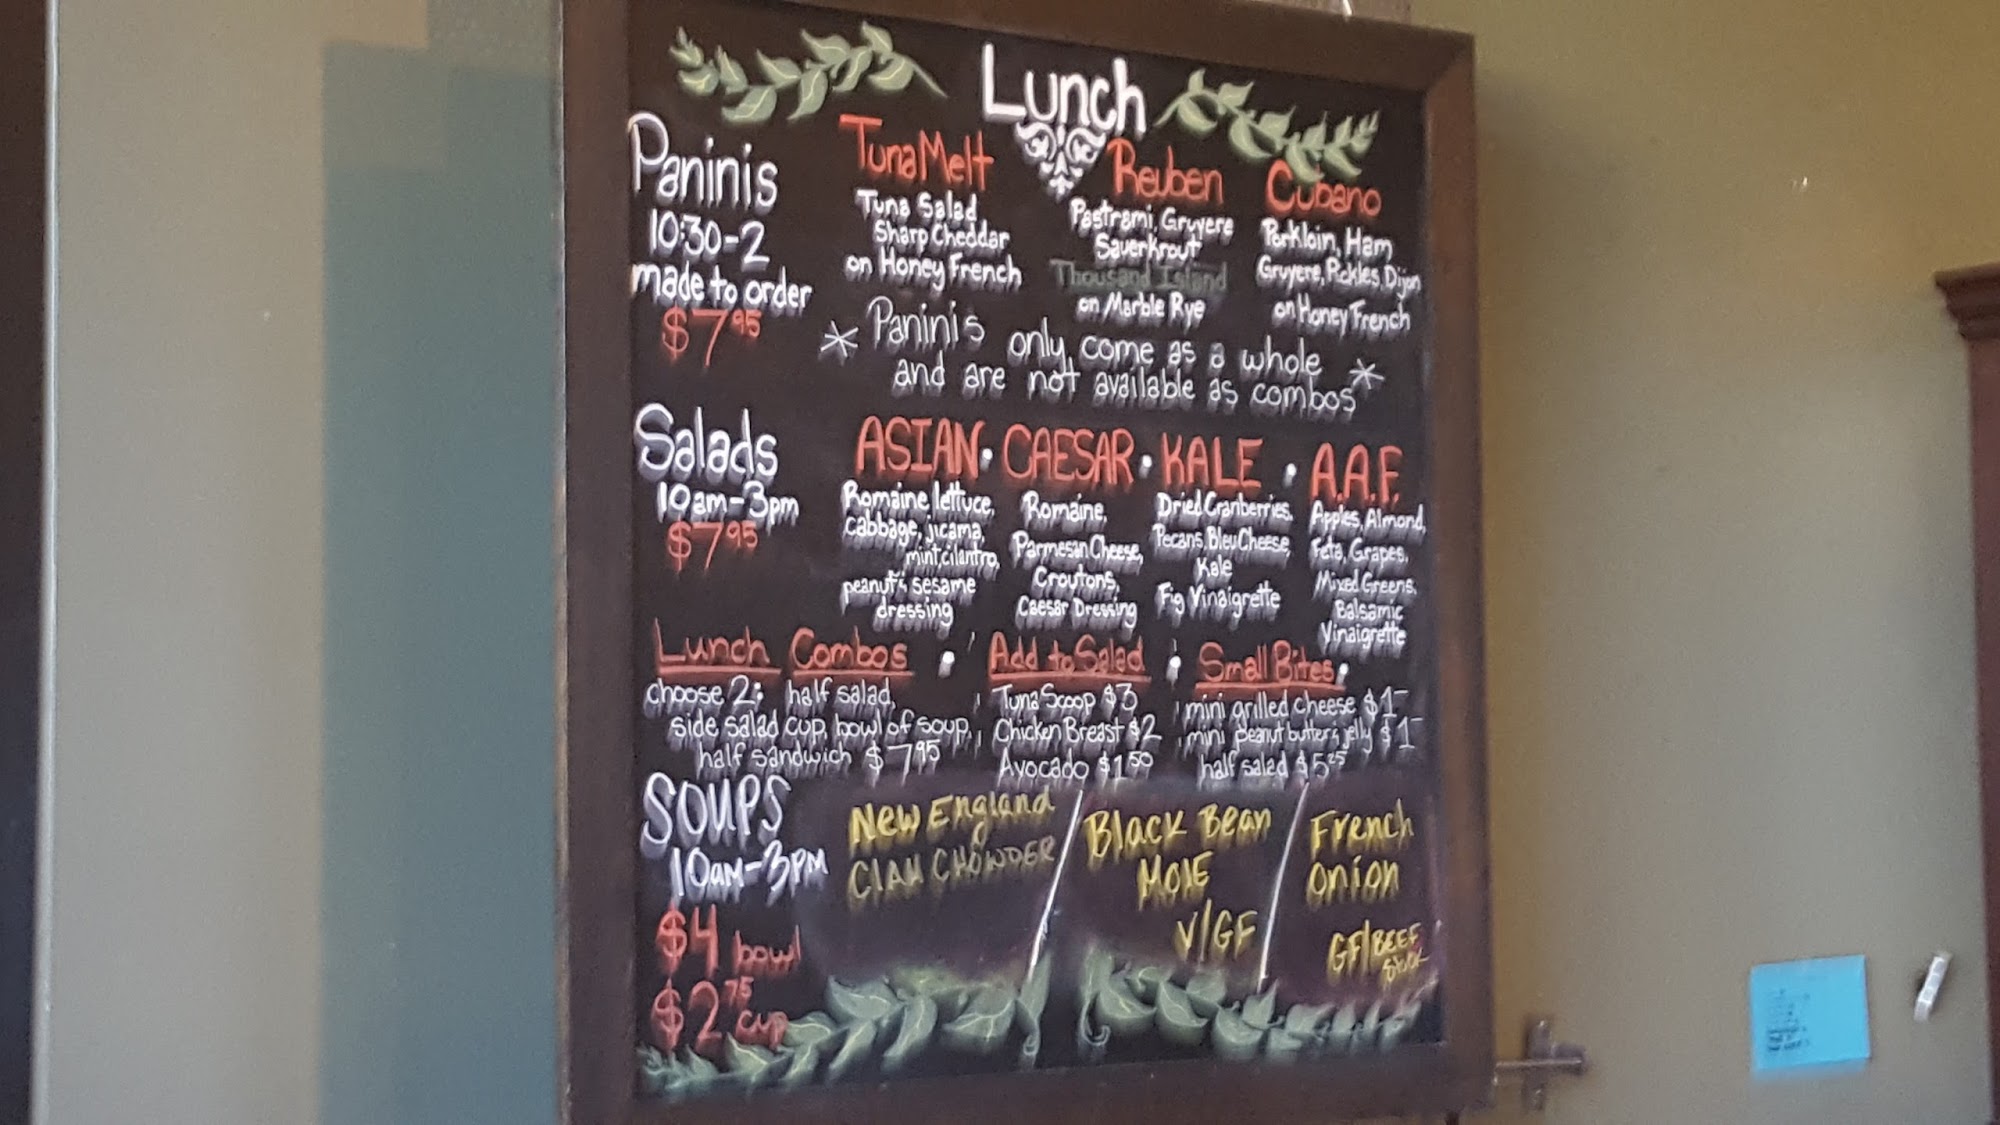 Lunch
Paninis
10:30-2
made to order
$7.95
Tuna Melt
Tuna Salad
Sharp Cheddar
on Honey French
Reuben
Pastrami, Gruyere
Sauerkrout
Thousand Island
on Marble Rye
Cubano
Porkloin, Ham
Gruyere, Pickles, Dijon
on Honey French
* Paninis only come as a whole
and are not available as combos *
Salads
10am-3pm
$7.95
ASIAN · CAESAR · KALE · A.A.F.
Romaine lettuce,
cabbage, jicama,
mint, cilantro,
peanut & sesame
dressing
Romaine,
Parmesan Cheese,
Croutons,
Caesar Dressing
Dried Cranberries,
Pecans, Bleu Cheese,
Kale
Fig Vinaigrette
Apples, Almond,
Feta, Grapes,
Mixed Greens,
Balsamic
Vinaigrette
Lunch Combos
choose 2: half salad,
side salad cup, bowl of soup,
half sandwich $7.95
Add to Salad
Tuna Scoop $3
Chicken Breast $2
Avocado $1.50
Small Bites
mini grilled cheese $1-
mini peanut butter & jelly $1-
half salad $5.25
SOUPS
10am-3pm
$4 bowl
$2.75 cup
New England
Clam Chowder
Black Bean
Mole
V/GF
French
Onion
GF/BEEF
Stock